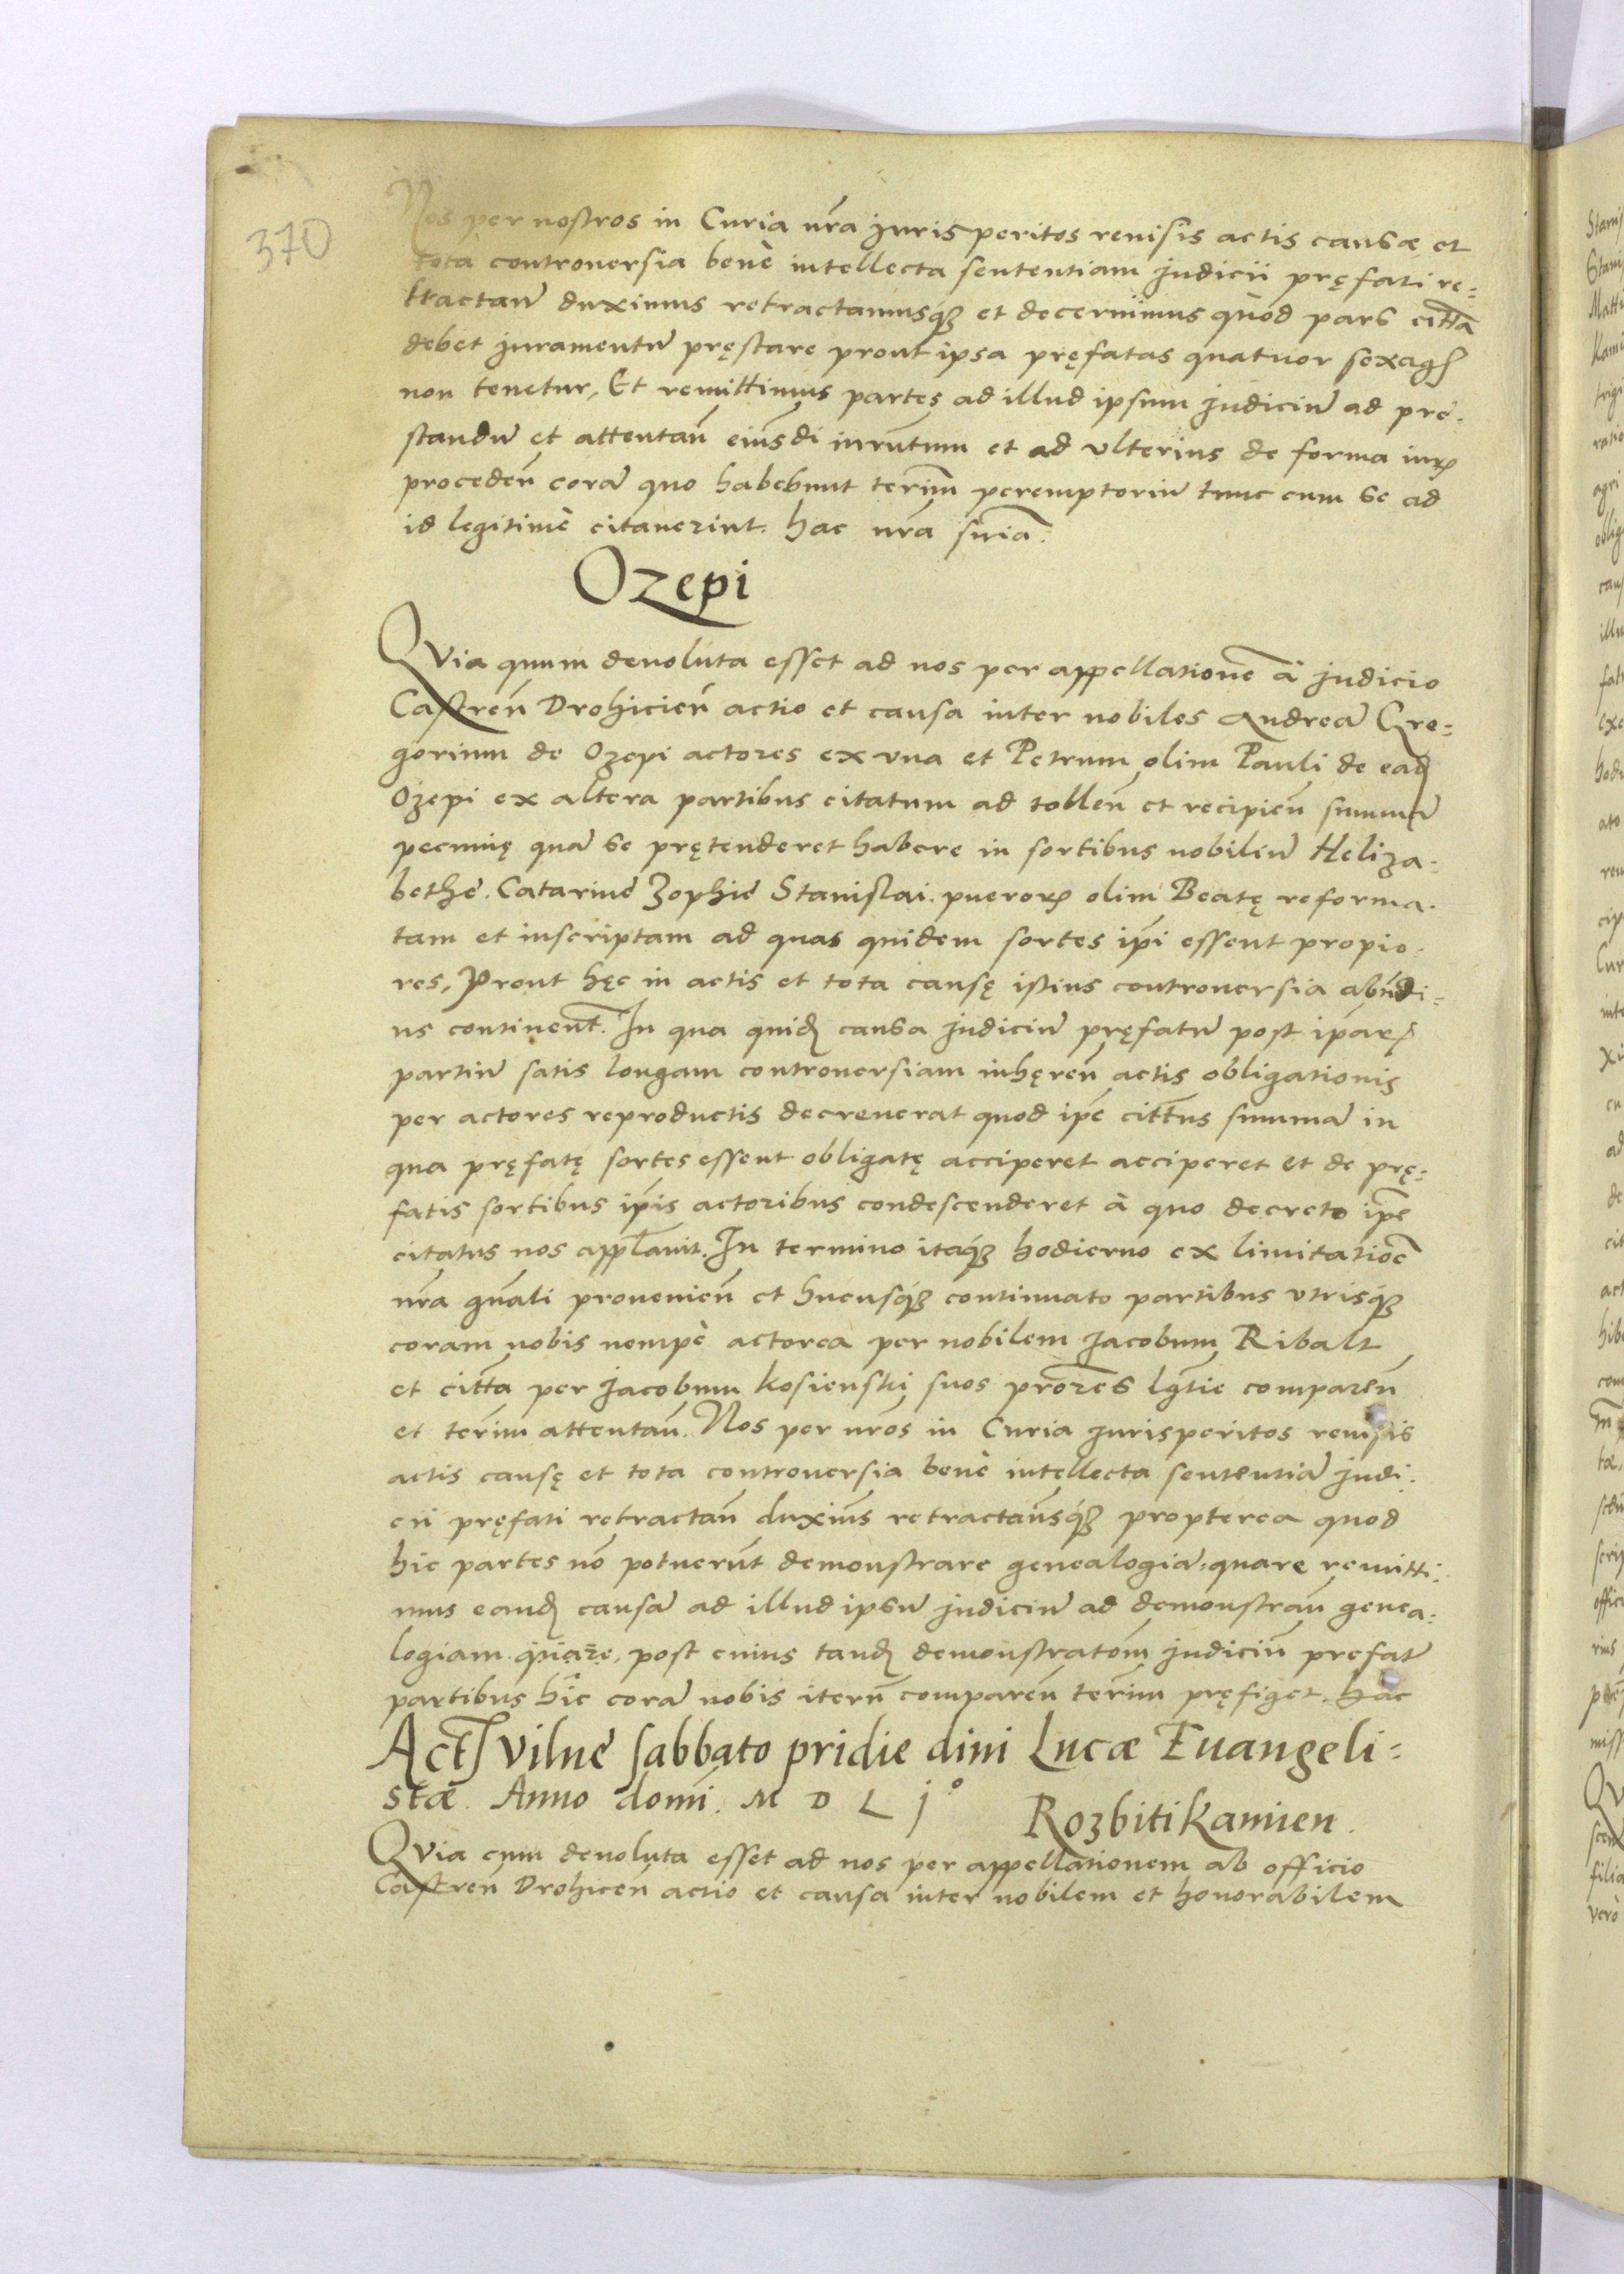 370
Nos per nostros in Curia nr̃a jurisperitos reuisis actis causæ et
tota controuersia benè intellecta sententiam judicii pręfati re=
tractan̄ duximus retractamusq3 et decernimus quòd pars citt̃a
debet juramentū pręstare prout ipsa pręfatas quatuor sexagꝭ
non tenetur, Et remittimus partes ad illud ipsum judiciū ad prę.
standū et attentan̄ eius̄di iur̄ntum et ad vlterius de forma iurꝭ
proceden̄ corā quo habebunt term̃ peremptoriū tunc cum se ad
id legitimè citauerint. hac nr̃a sn̄ia.
Ozepi
Qvia quum deuoluta esset ad nos per appellationē à judicio
Castren̄ Drohicien̄ actio et causa inter nobiles Andreā Gre=
gorium de Ozepi actores ex vna et Petrum olim Pauli de eadꝭ
Ozepi ex altera partibus citatum ad tollen̄ et recipien̄ summā
pecunię quā se pretenderet habere in sortibus nobiliū Heliza.
bethę. Catarinę Zophię Stanislai. puerorꝭ olim Beatę reforma.
tam et inscriptam ad quas quidem sortes ip̃i essent propio.
res, Prout hęc in actis et tota causę istius controuersia abūdi=
us continent̃. In qua quidꝭ causa judiciū pręfatū post ip̃arꝭ
partiū satis longam controuersiam inhęren̄ actis obligationis
per actores reproductis decreuerat quod ip̃e citt̃us summā in
qua pręfatę sortes essent obligatę acciperet acciperet et de prę=
fatis sortibus ip̃is actoribus condescenderet à quo decreto ip̃e
citatus nos appl̃auit. In termino itaq3 hodierno ex limitatiõe
nr̃a gn̄ali prouenien̄ et hucusq3 continuato partibus vtrisq3
coram nobis nempè actorea per nobilem Jacobum Ribalt
et citt̃a per Jacobum Kosienski suos procr̃es lg̃tie comparen̄
et term̃ attentan̄. Nos per nr̃os in Curia jurisperitos reuisis
actis causę et tota controuersia benè intellecta sententiā judi.
cii pręfati retractan̄ duxim̄s retractam̄sq3 propterea quod
hic partes nō potuerunt demonstrare genealogiā. quare remitti.
mus eandꝭ causā ad illud ipsū judiciū ad demonstran̄ genea=
logiam quare, post cuius tandꝭ demonstratōm judiciū prefatū
partibus hîc corā nobis iterū comparen̄ term̃ pręfiget. hac
Actꝭ Vilnę sabbato pridie diui Lucæ Euangeli=
stæ. Anno domĩ. M D L j°
Rozbitikamien.
Qvia cum deuoluta esset ad nos per appellationem ab officio
Castren̄ Drohicen̄ actio et causa inter nobilem et honorabilem